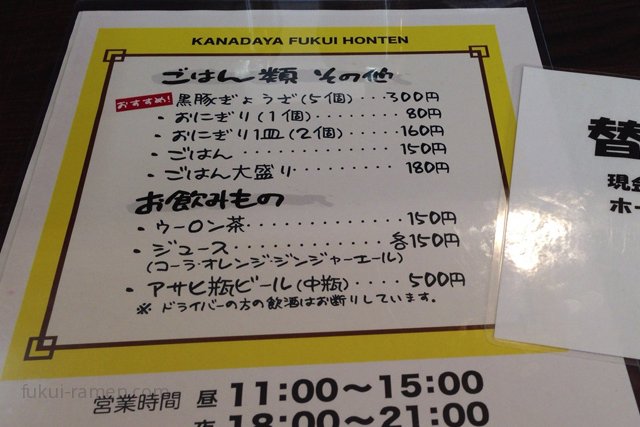 KANADAYA FUKUI HONTEN
ごはん類 その他
おすすめ! 黒豚ぎょうざ(5個)・・・300円
・おにぎり(1個)・・・・・・・80円
・おにぎり1皿(2個)・・・・160円
・ごはん・・・・・・・・・・・・150円
・ごはん大盛り・・・・・・・・180円
お飲みもの
・ウーロン茶・・・・・・・・・・・150円
・ジュース・・・・・・・・・・・各150円
(コーラ・オレンジ・ジンジャーエール)
・アサヒ瓶ビール(中瓶)・・・500円
※ ドライバーの方の飲酒はお断りしています。
営業時間 昼 11:00〜15:00
夜 18:00〜21:00
替
現金
ホー
fukui-ramen.com